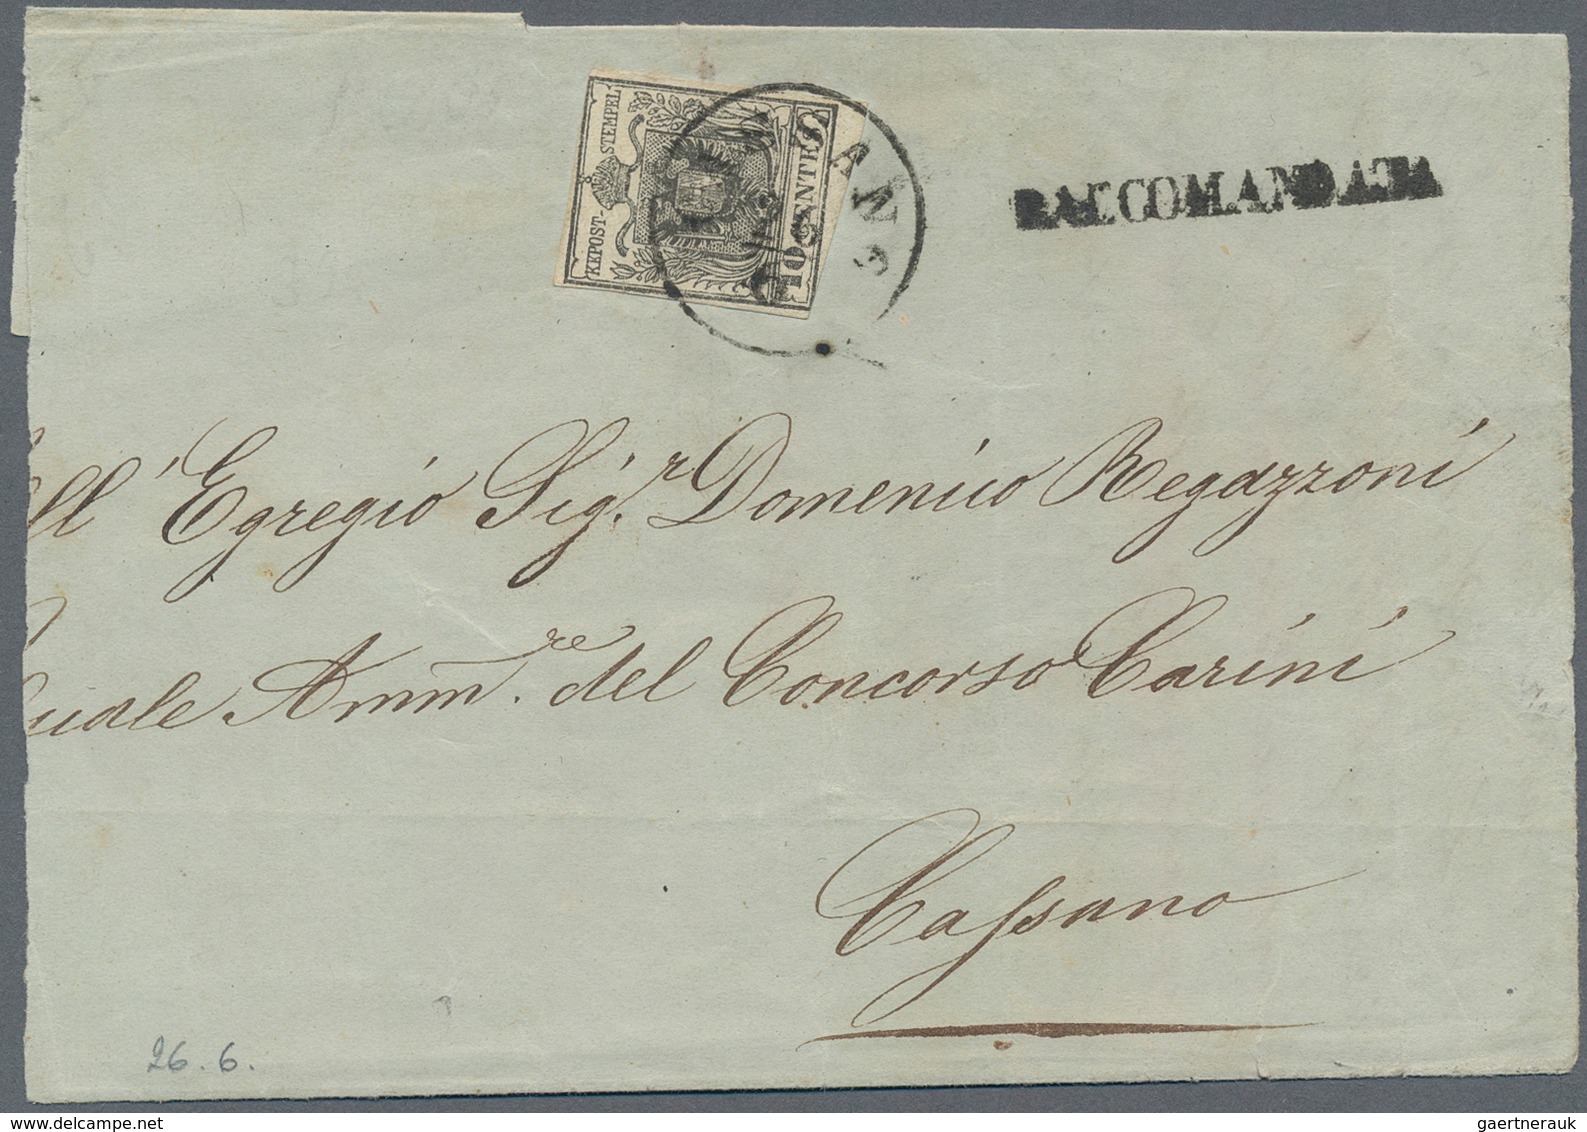 KKPOST-STEMPEL
10 CENTES
RACCOMANDATA
All' Egregio Sig.r Domenico Regazzoni
quale Amm.re del Concorso Carini
Cassano
26.6.
gaertnerauk